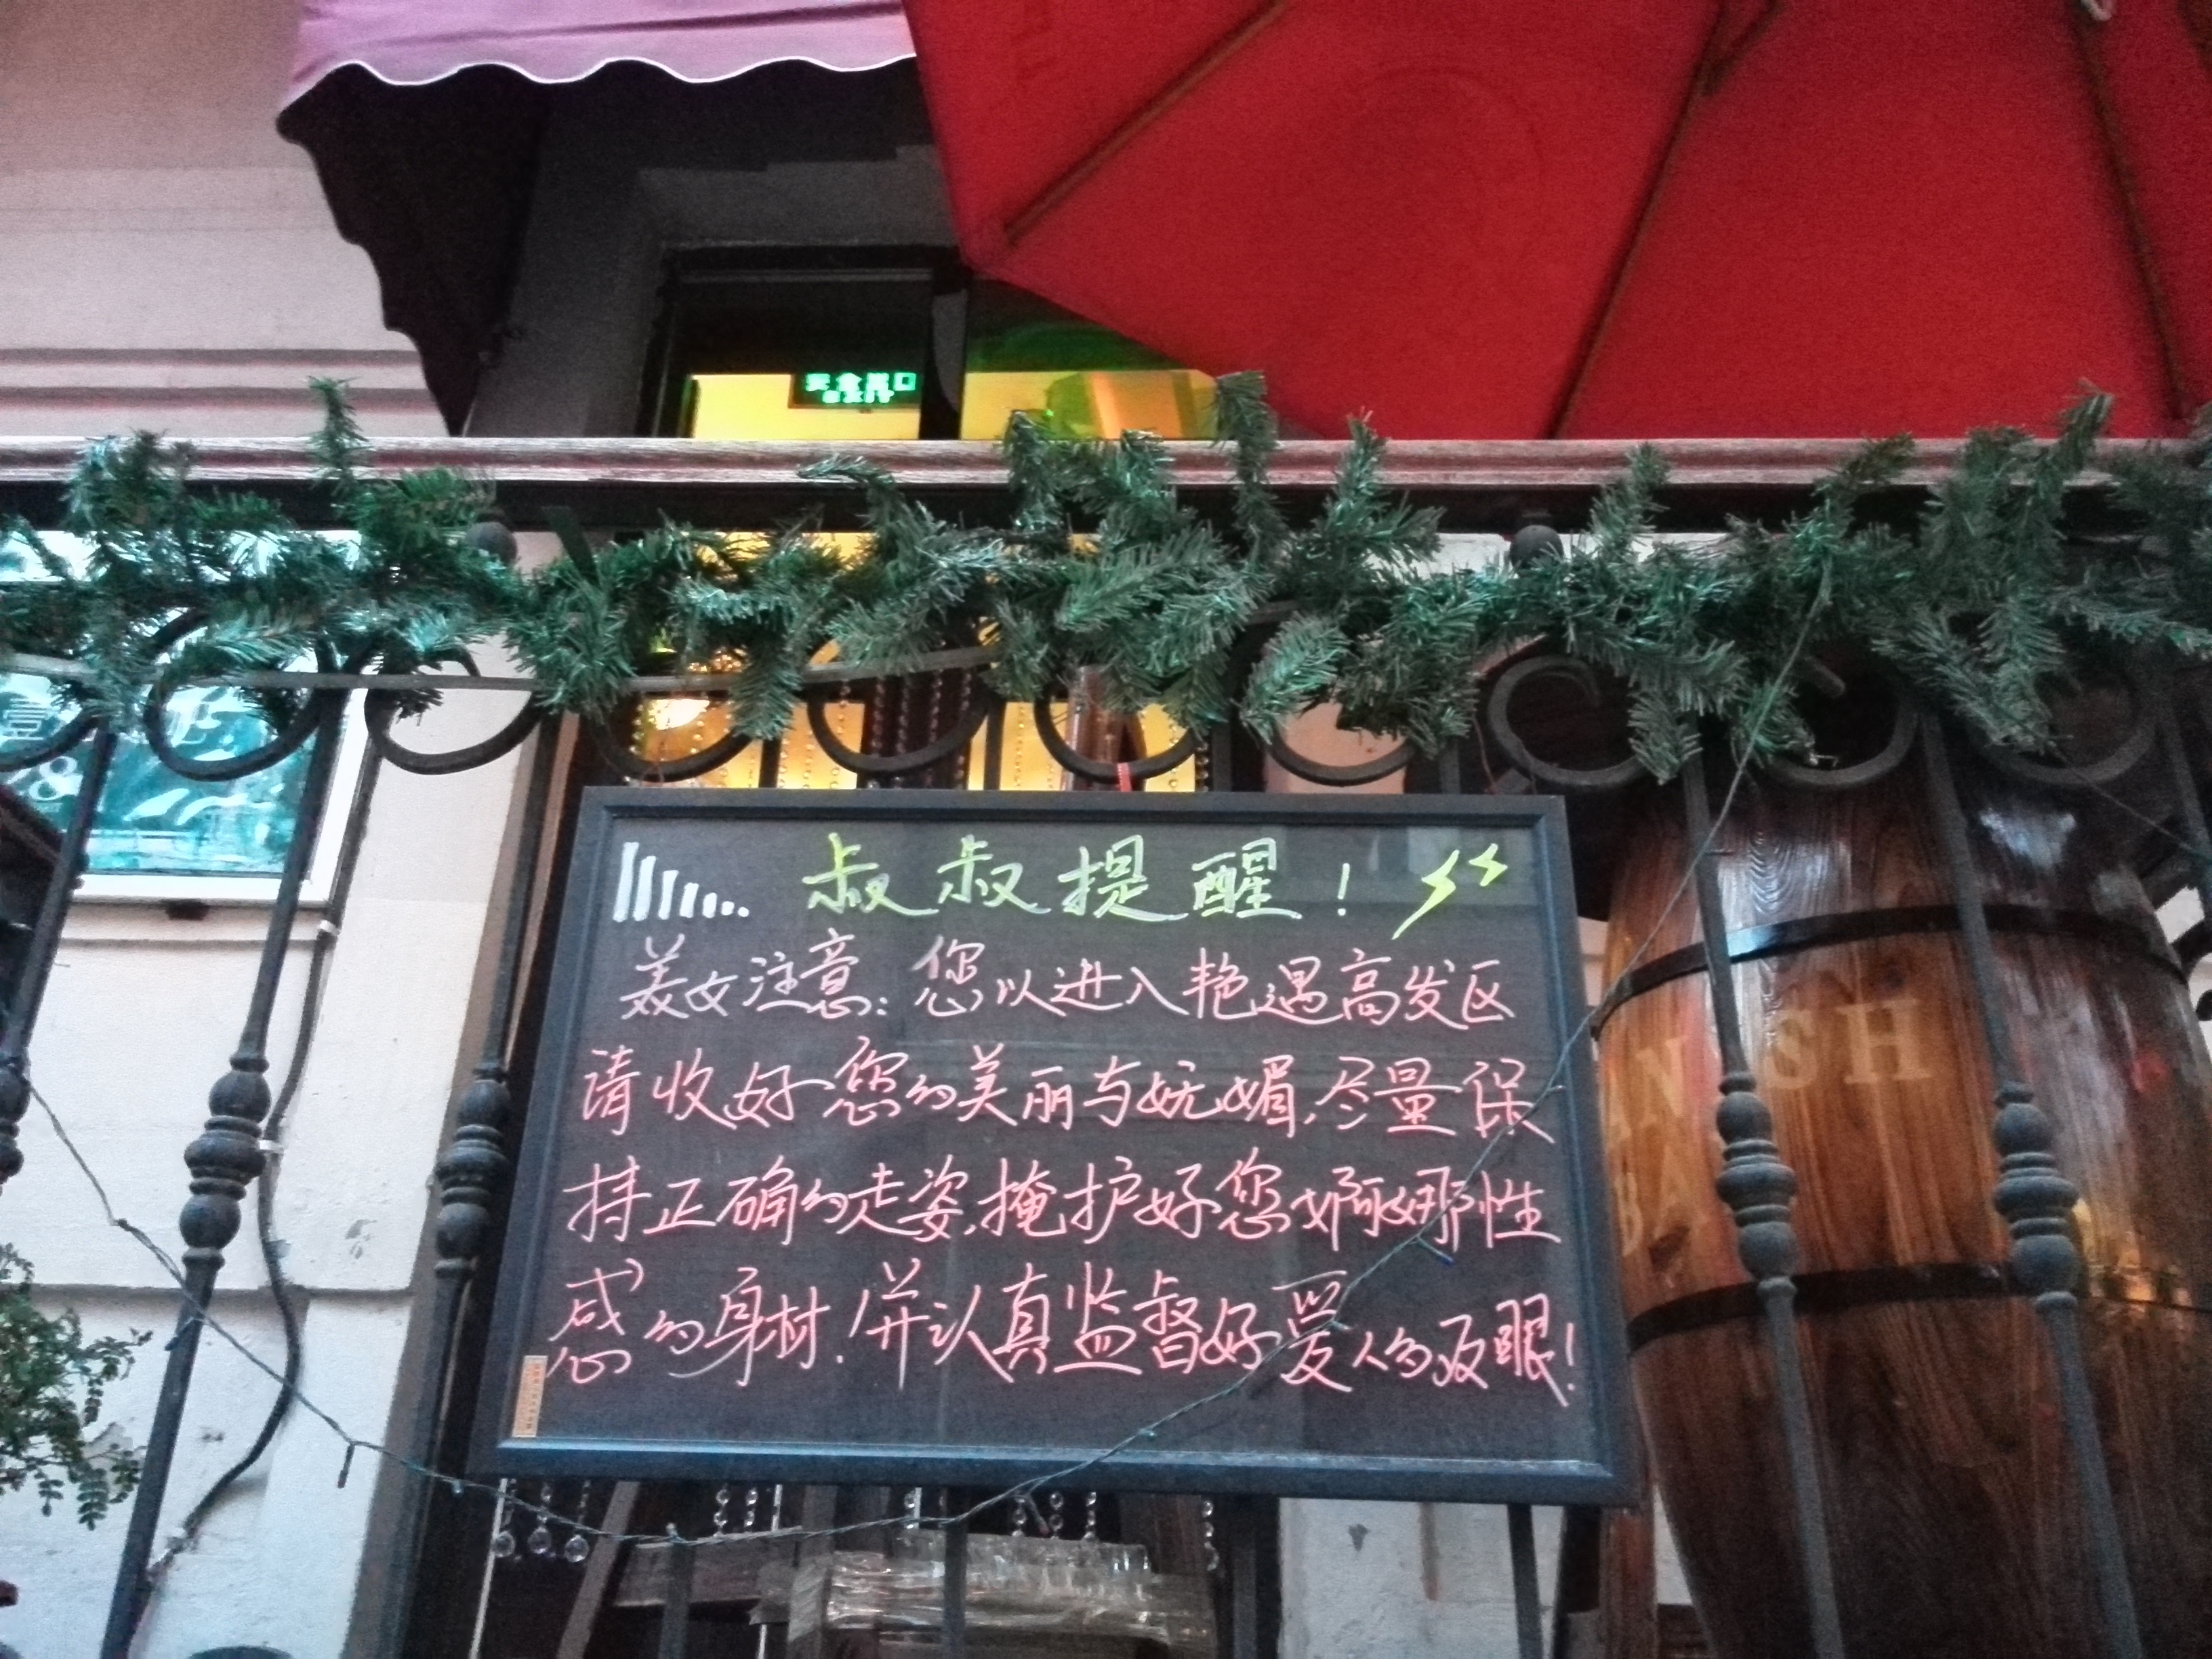 安全出口
EXIT
叔叔提醒!
美女注意:您以进入艳遇高发区
请收好您的美丽与妩媚,尽量保
持正确的走姿,掩护好您婀娜性
感的身材!并认真监督好爱人的双眼!
ANISH
BA